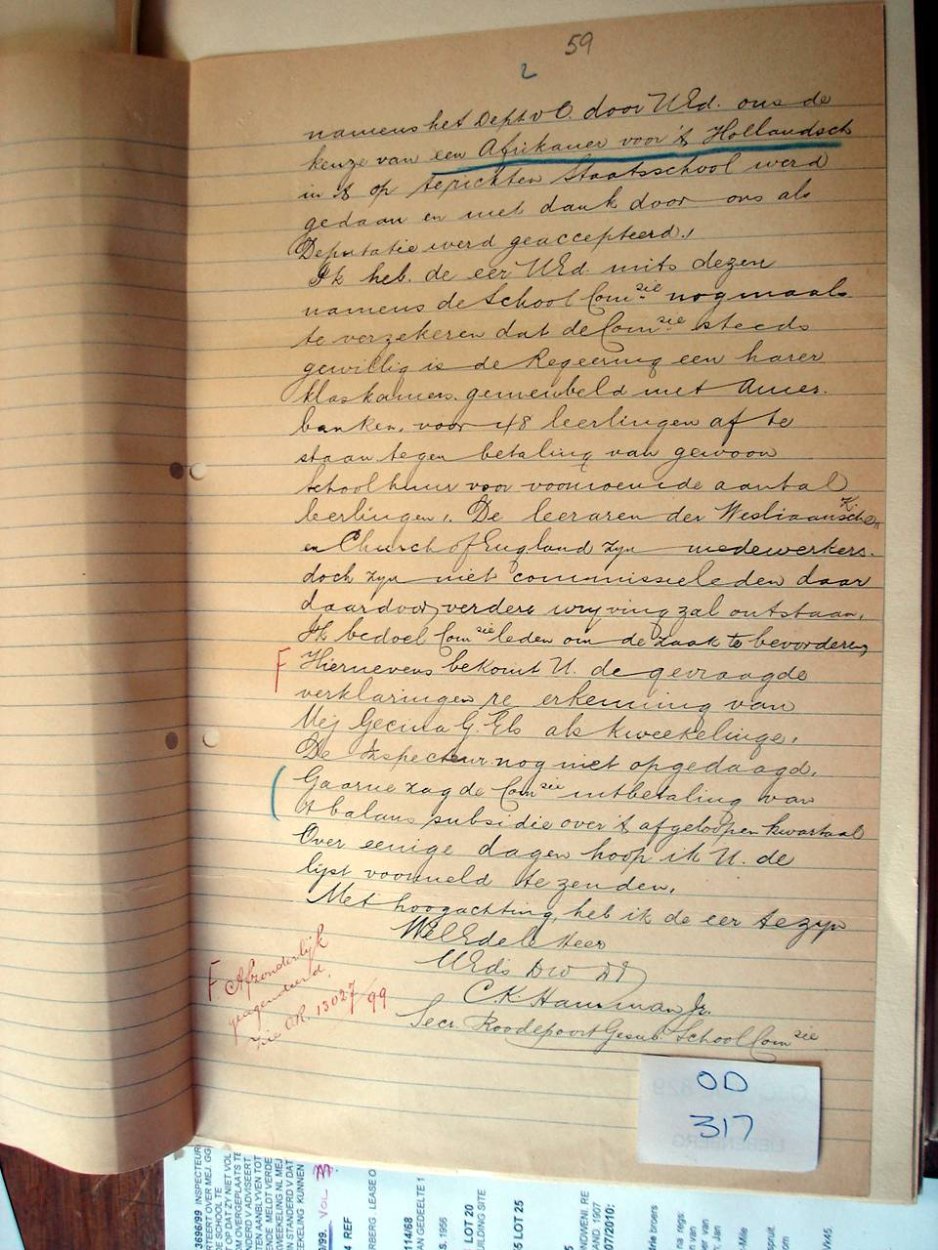 59
2
namens het Dept v O. door UEd. ons de
keuze van een Afrikaner voor 't Hollandsch
in 't op te richten Staatsschool werd
gedaan en met dank door ons als
Deputatie werd geaccepteerd.
Ik heb. de eer UEd. mits dezen
namens de School Comsie nogmaals
te verzekeren dat de Comsie steeds
gewillig is de Regeering een harer
klaskamers. gemeubeld met Amer.
banken. voor 48 leerlingen af te
staan tegen betaling van gewoon
schoolhuur voor voornoemde aantal
leerlingen. De leeraren der Wesliaansche K.
en Church of England zyn medewerkers.
doch zyn niet commissieleden daar
daardoor verdere wryving zal ontstaan.
Ik bedoel Comsie leden om de zaak te bevorderen
F Hiernevens bekomt U. de gevraagde
verklaringen re erkenning van
Mej Gecina G. Els als kweekelinge.
De Inspecteur nog niet opgedaagd.
Gaarne zag de Comsie uitbetaling van
't balans subsidie over 't afgeloopen kwartaal
Over eenige dagen hoop ik U. de
lyst voormeld te zenden.
Met hoogachting heb ik de eer te zyn
WelEdele Heer
UEds Dw Dr
C. K. Hamman Jr.
Secr. Roodepoort Gesub. School Comsie
F Afzonderlijk
geagendeerd.
Zie OR. 13027/99
OD
317
3696/99 INSPECTEUR
/99. VOL 33
4 REF
RBERG LEASE O
114/68
AN GEDEELTE 1
S. 1956
LOT 20
UILDING SITE
5 LOT 25
NDWENI. RE
AND. 1907
07/2010:
drie broers